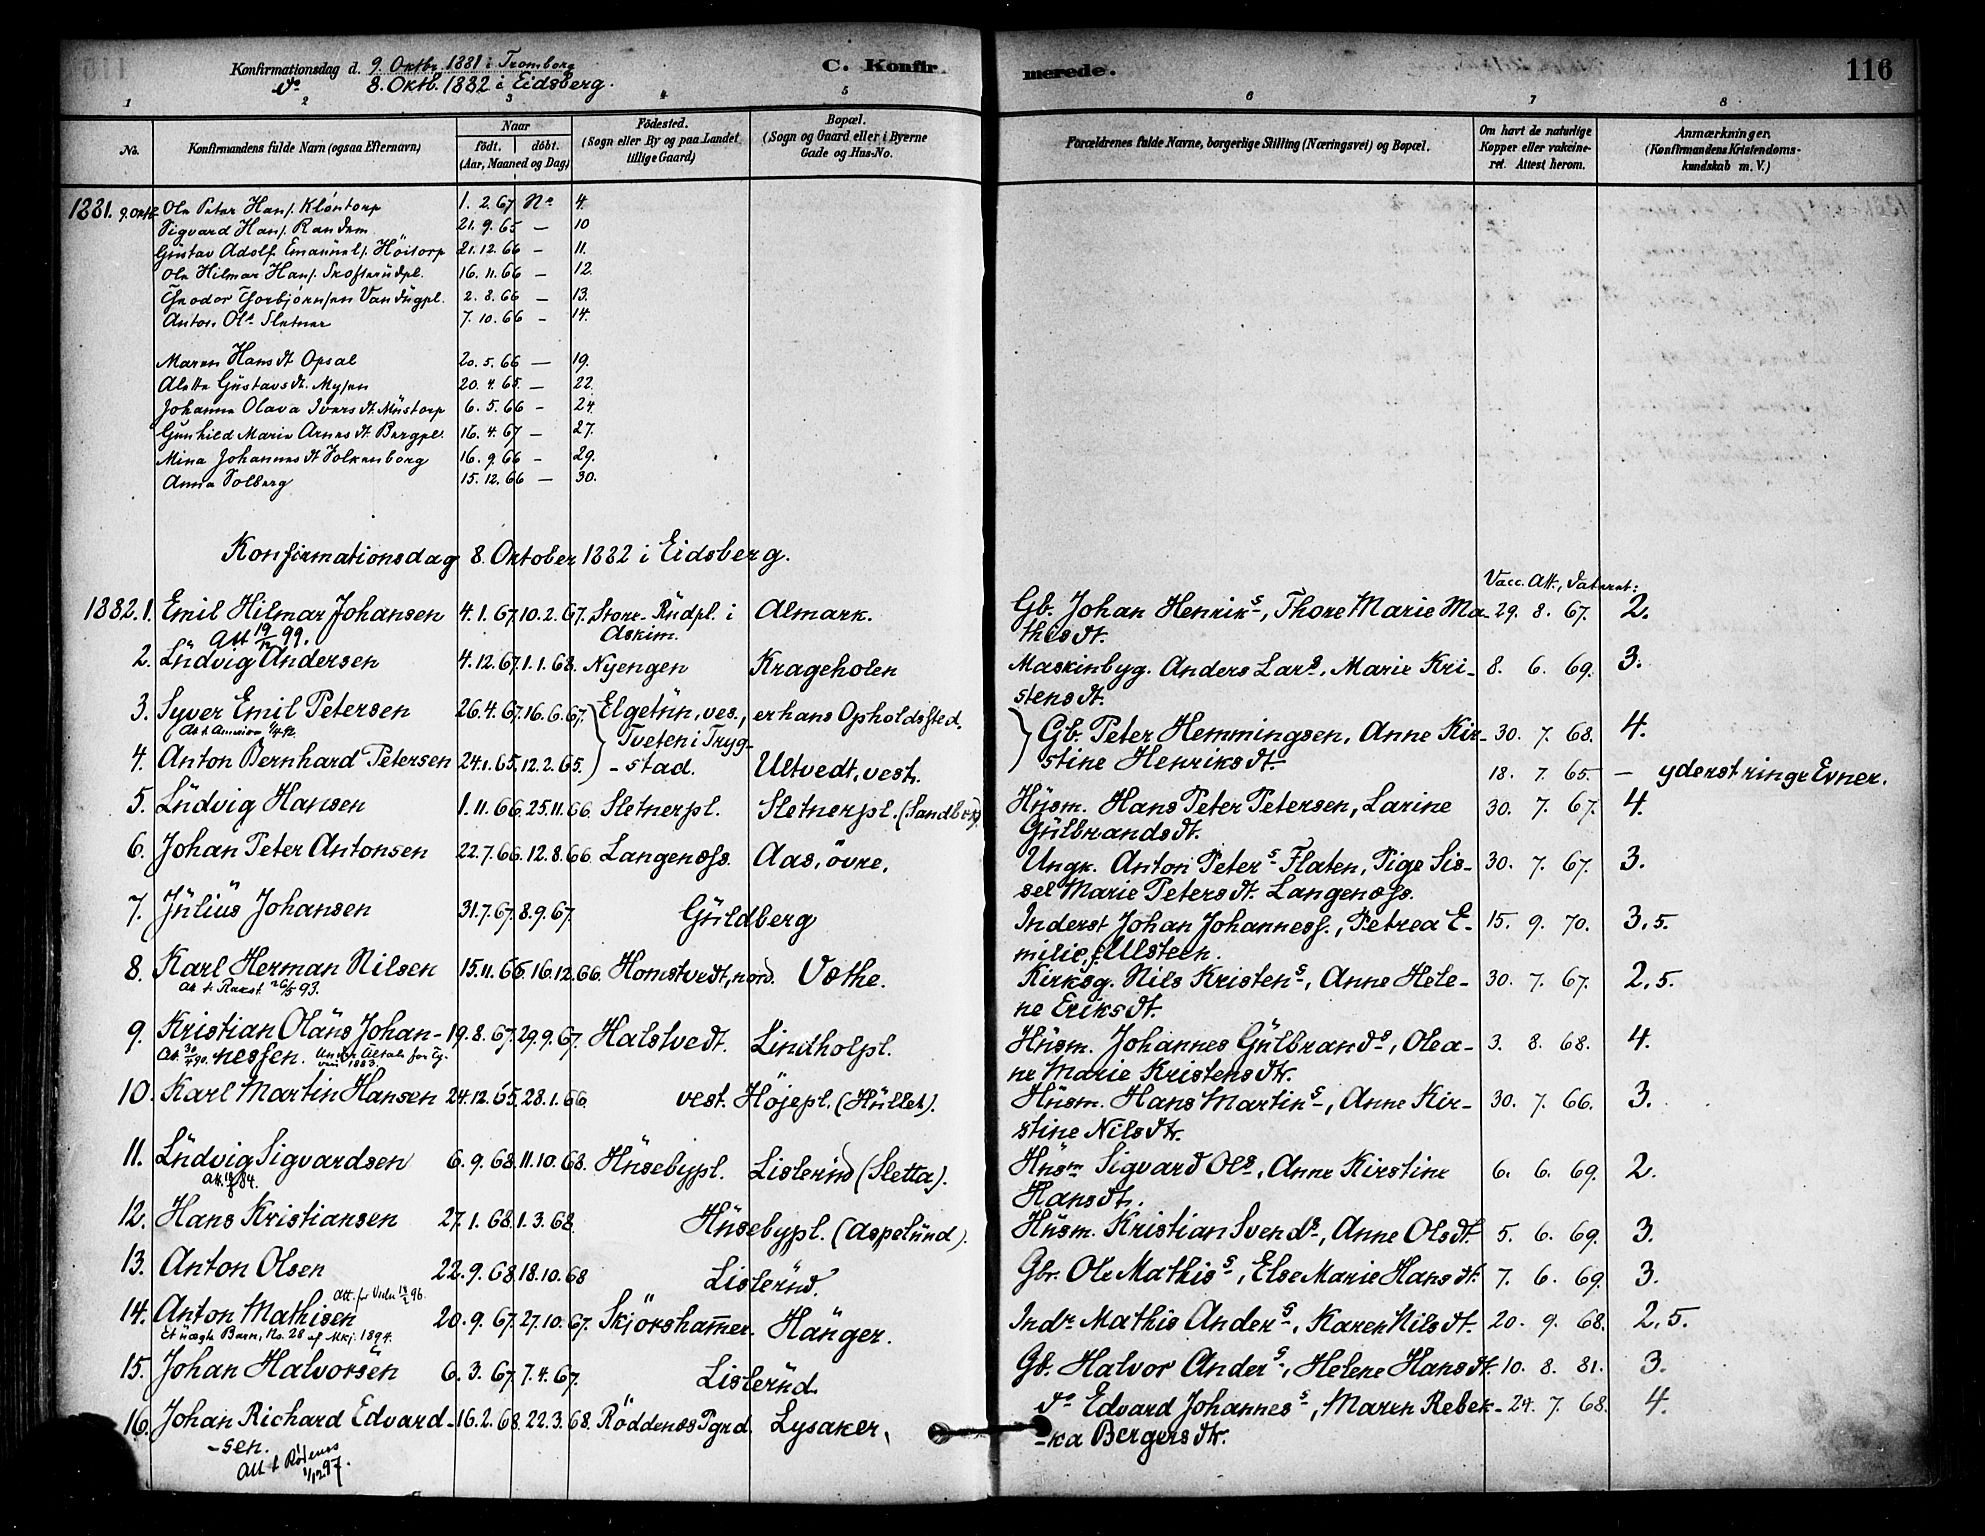 Konfirmationsdag d. 9. Oktbr. 1881 i Tromborg
do 8. Oktb. 1882 i Eidsberg.
C. Konfir merede. 116
1 2 3 4 5 6 7 8
No. Konfirmandens fulde Navn (ogsaa Efternavn) Naar født. døbt. (Aar, Maaned og Dag) Fødested. (Sogn eller By og paa Landet tillige Gaard) Bopæl. (Sogn og Gaard eller i Byerne Gade og Hus-No. Forældrenes fulde Navne, borgerlige Stilling (Næringsvei) og Bopæl. Om havt de naturlige Kopper eller vaccineret. Attest herom. Anmærkninger. (Konfirmandens Kristendomskundskab m. V.)
1881. 9. Oktb. Ole Peter Hans. Kløntorp 1. 2. 67 No 4.
Sigvard Hans. Randem 21. 9. 65 — 10
Gustav Adolf Emanuels. Høitorp 21. 12. 66 — 11.
Ole Hilmar Hans. Skofterudpl. 16. 11. 66 — 12.
Theodor Thorbjørnsen Vandugpl. 2. 8. 66 — 13.
Anton Ols. Sletner 7. 10. 66 — 14.
Maren Hansdt. Opsal 20. 5. 66 — 19.
Alette Gustavsdt. Mysen 20. 4. 65 — 22.
Johanne Olava Iversdt. Mustorp 6. 5. 66 — 24.
Gunhild Marie Arnesdt. Bergpl. 16. 4. 67 — 27.
Mina Johannesdt. Folkenborg 16. 9. 66 — 29.
Anna Solberg 15. 12. 66 — 30.
Konfirmationsdag 8. Oktober 1882 i Eidsberg.
Vacc. Att., dateret:
1882. 1. Emil Hilmar Johansen 4. 1. 67 10. 2. 67. Store-Rudpl. i Almark. Gb. Johan Henriks., Thore Marie Ma- 29. 8. 67. 2.
Att 19/12 99. Askim. thisdt.
2. Ludvig Andersen 4. 12. 67 1. 1. 68. Nyengen Krageholen Maskinbyg. Anders Lars., Marie Kri- 8. 6. 69. 3.
stensdt.
3. Syver Emil Petersen 26. 4. 67. 16. 6. 67. Elgetun, ves., er hans Opholdssted. Gb. Peter Hemmingsen, Anne Kir- 30. 7. 68. 4.
Tveten i Tryg-
4. Anton Bernhard Petersen 24. 1. 65. 12. 2. 65. -stad. Ultvedt, vest. stine Henriksdt. 18. 7. 65. — yderst ringe Evner.
5. Ludvig Hansen 1. 11. 66. 25. 11. 66. Sletnerpl. Sletnerpl. Husm. Hans Peter Petersen, Larine 30. 7. 67. 4.
Gulbrandsdt.
6. Johan Peter Antonsen 22. 7. 66. 12. 8. 66. Langenæss. Aas, øvre. Ungk. Anton Peters. Flaten, Pige Sis- 30. 7. 67. 3.
sel Marie Petersdt. Langenæss.
7. Julius Johansen 31. 7. 67. 8. 9. 67. Guldberg Inderst Johan Johanness., Petrea E- 15. 9. 70. 3,5.
milie, f. Ulsteen.
8. Karl Herman Nilsen 15. 11. 66. 16. 12. 66. Homstvedt, nord. Vethe. Kirksg. Nils Kristens., Anne Hele- 30. 7. 67. 2,5.
26/5 93. ne Eriksdt.
9. Kristian Olaus Johan- 19. 8. 67. 29. 9. 67. Halstvedt. Lindholpl. Husm. Johannes Gulbrands., Olea- 3. 8. 68. 4.
nessen. ne Marie Kristensdtr.
10. Karl Martin Hansen 24. 12. 65. 28. 1. 66. vest. Højepl. (Hullet). Husm. Hans Martins., Anne Kir- 30. 7. 66. 3.
stine Nilsdtr.
11. Ludvig Sigvardsen 6. 9. 68. 11. 10. 68. Husebypl. Lislerud (Sletta). Husm Sigvard Ols., Anne Kirstine 6. 6. 69. 2.
Hansdt.
12. Hans Kristiansen 27. 1. 68. 1. 3. 68. Husebypl. (Aspelund). Husm. Kristian Svends., Anne Olsdt. 5. 6. 69. 3.
13. Anton Olsen 22. 9. 68 18. 10. 68 Lislerud. Gbr. Ole Mathiss., Else Marie Hansdt. 7. 6. 69. 3.
14. Anton Mathisen 20. 9. 67. 27. 10. 67. Skjørshammer. Hånger. Indr Mathis Anders., Karen Nilsdt. 20. 9. 68. 2,5.
Et uægte Barn, No. 28 af Mkj. 1894.
15. Johan Halvorsen 6. 3. 67 7. 4. 67. Lislerud. Gb. Halvor Anders., Helene Hansdt. 10. 8. 81. 3.
16. Johan Richard Edvard- 16. 2. 68. 22. 3. 68. Røddenæs Pgrd. Lysaker. do Edvard Johannes., Maren Rebek- 24. 7. 68. 4.
-sen. -ka Bergersdtr.
Att t. Rødenes
1/12 97.